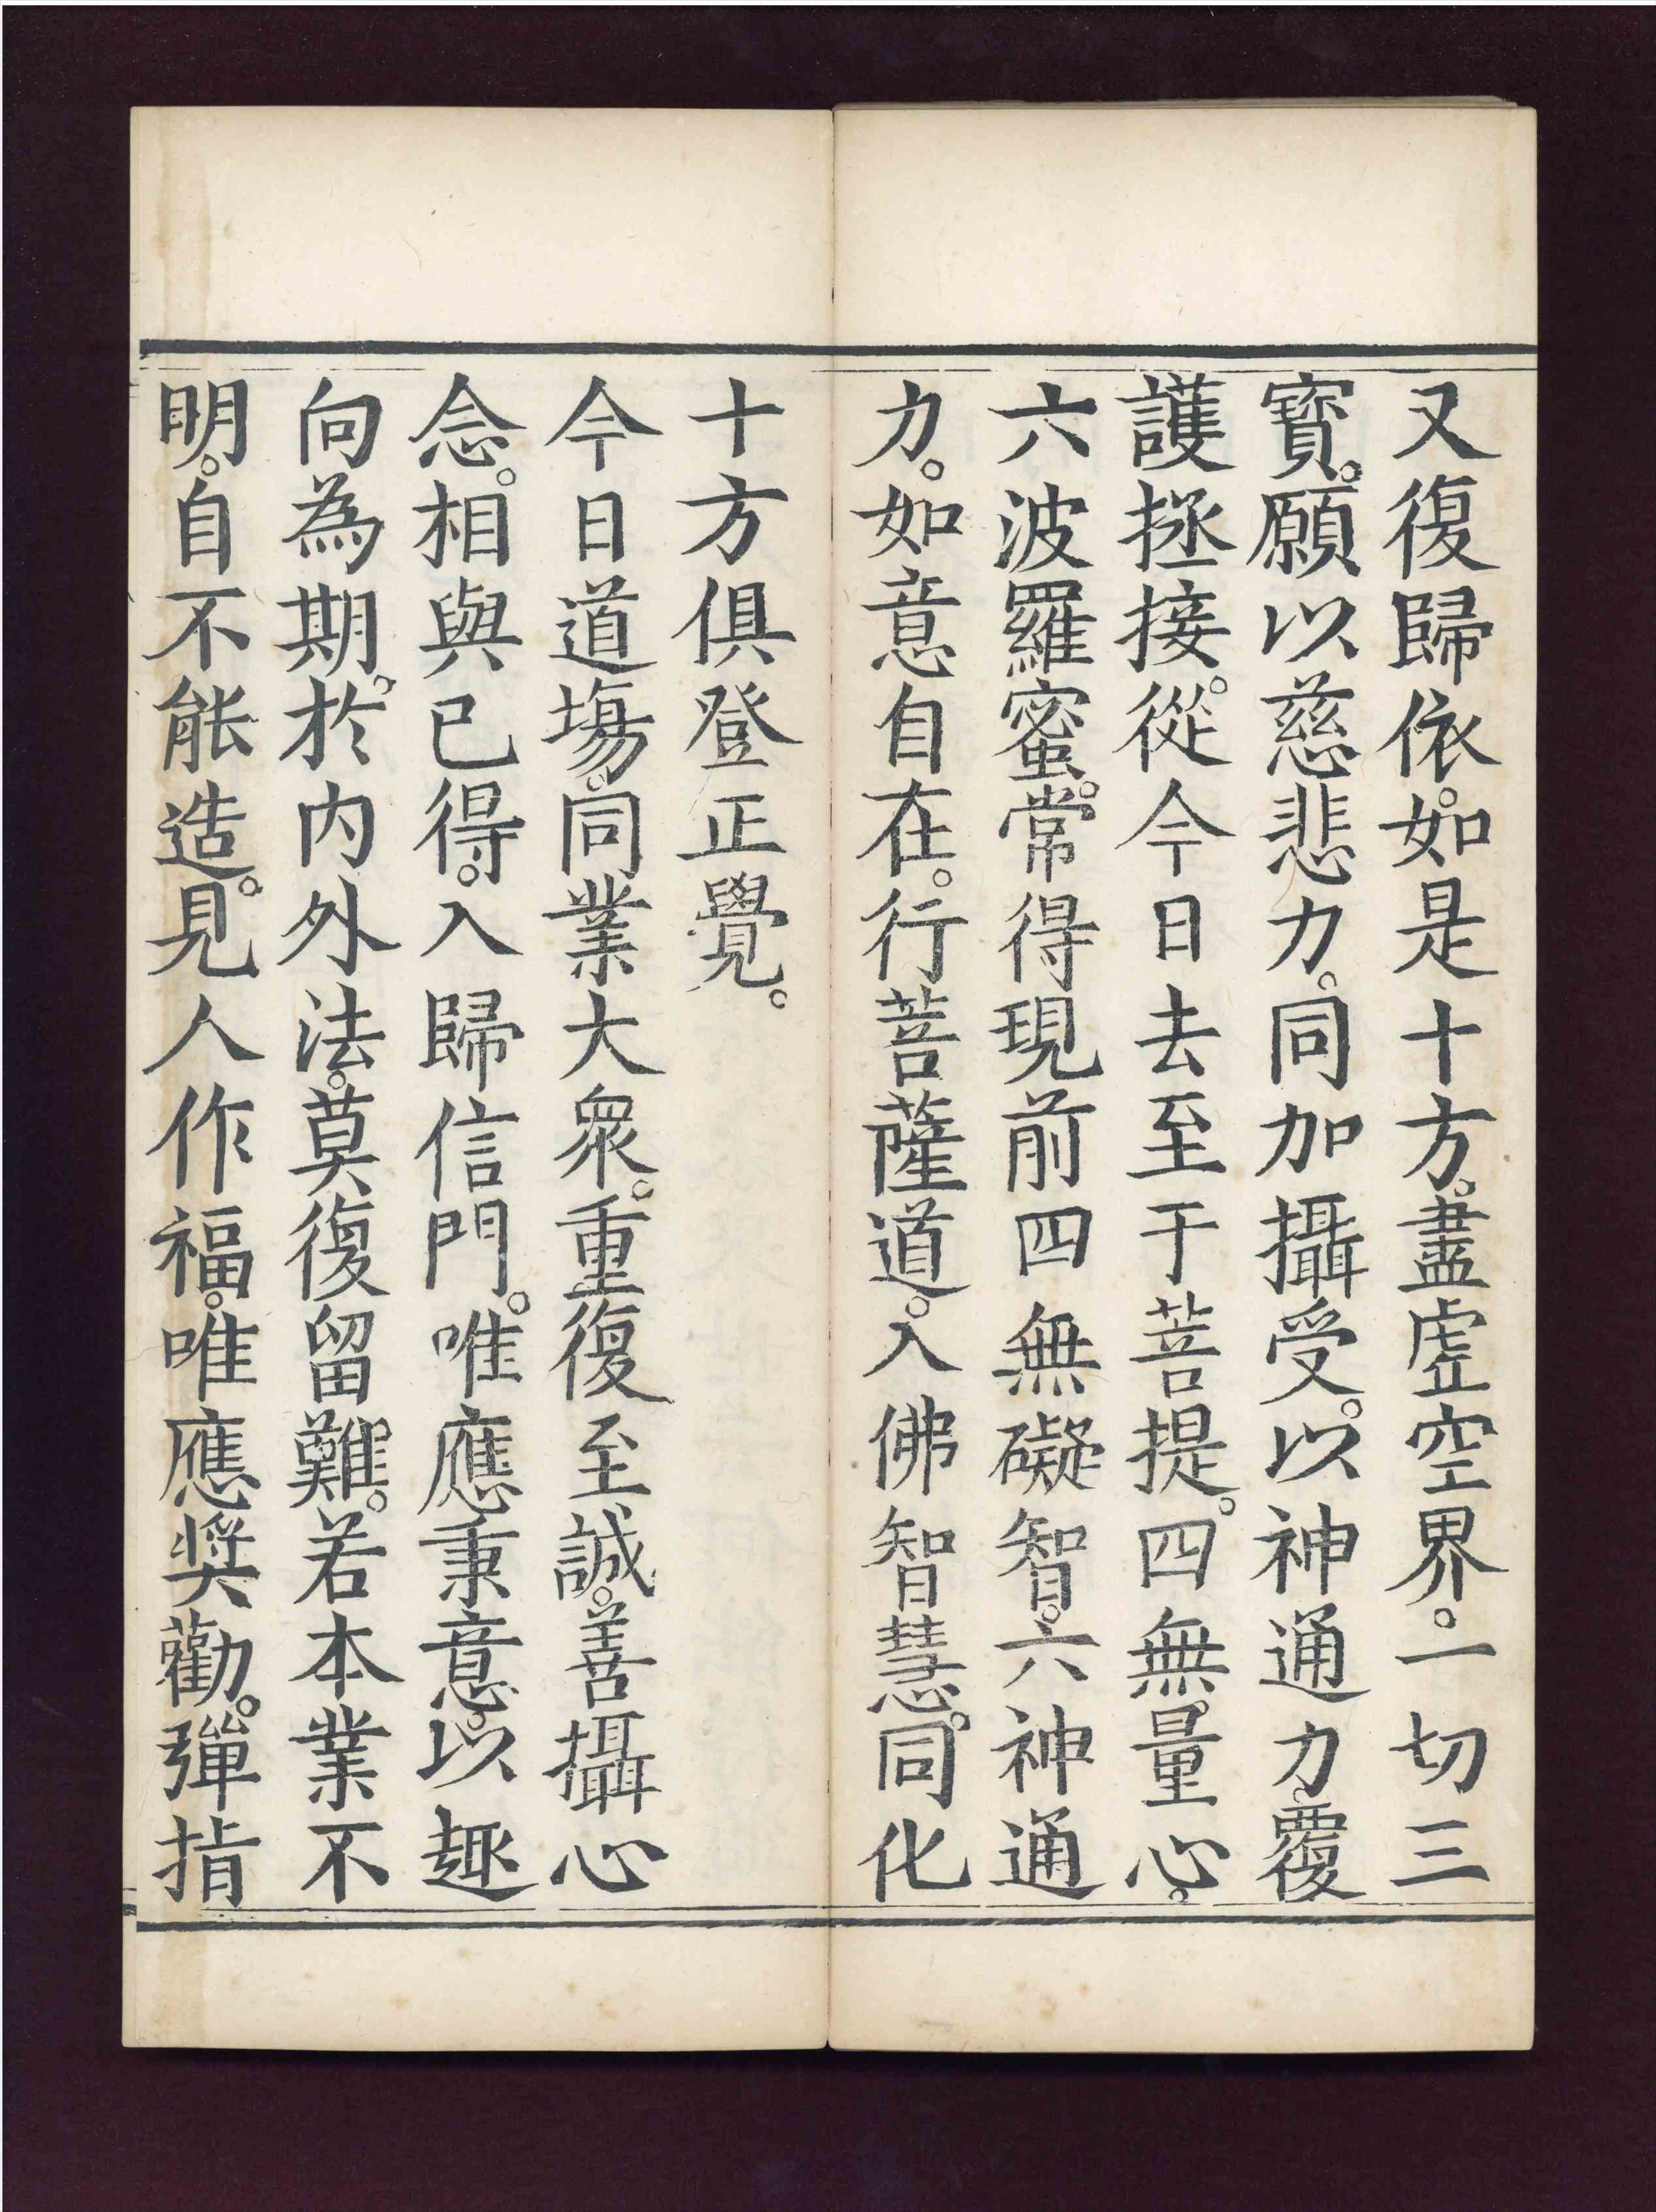 又復歸依。如是十方。盡虛空界。一切三
寳。願以慈悲力。同加攝受。以神通力。覆
護拯接。從今日去至于菩提。四無量心。
六波羅蜜。常得現前四無礙智。六神通
力。如意自在。行菩薩道。入佛智慧。同化
十方俱登正覺。
今日道場。同業大衆。重復至誠。善攝心
念。相與已得。入歸信門。唯應秉意。以趣
向為期。於内外法。莫復留難。若本業不
明。自不能造。見人作福。唯應奨勸。彈指